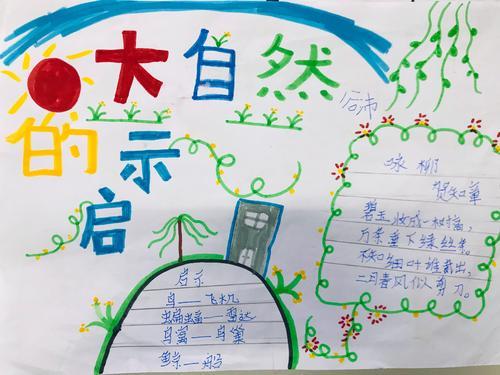 大自然
的启示
咏柳
贺知章
碧玉妆成一树高,
万条垂下绿丝绦。
不知细叶谁裁出,
二月春风似剪刀。
启示
鸟——飞机
蝙蝠——雷达
鸟窝——鸟巢
鲸——船